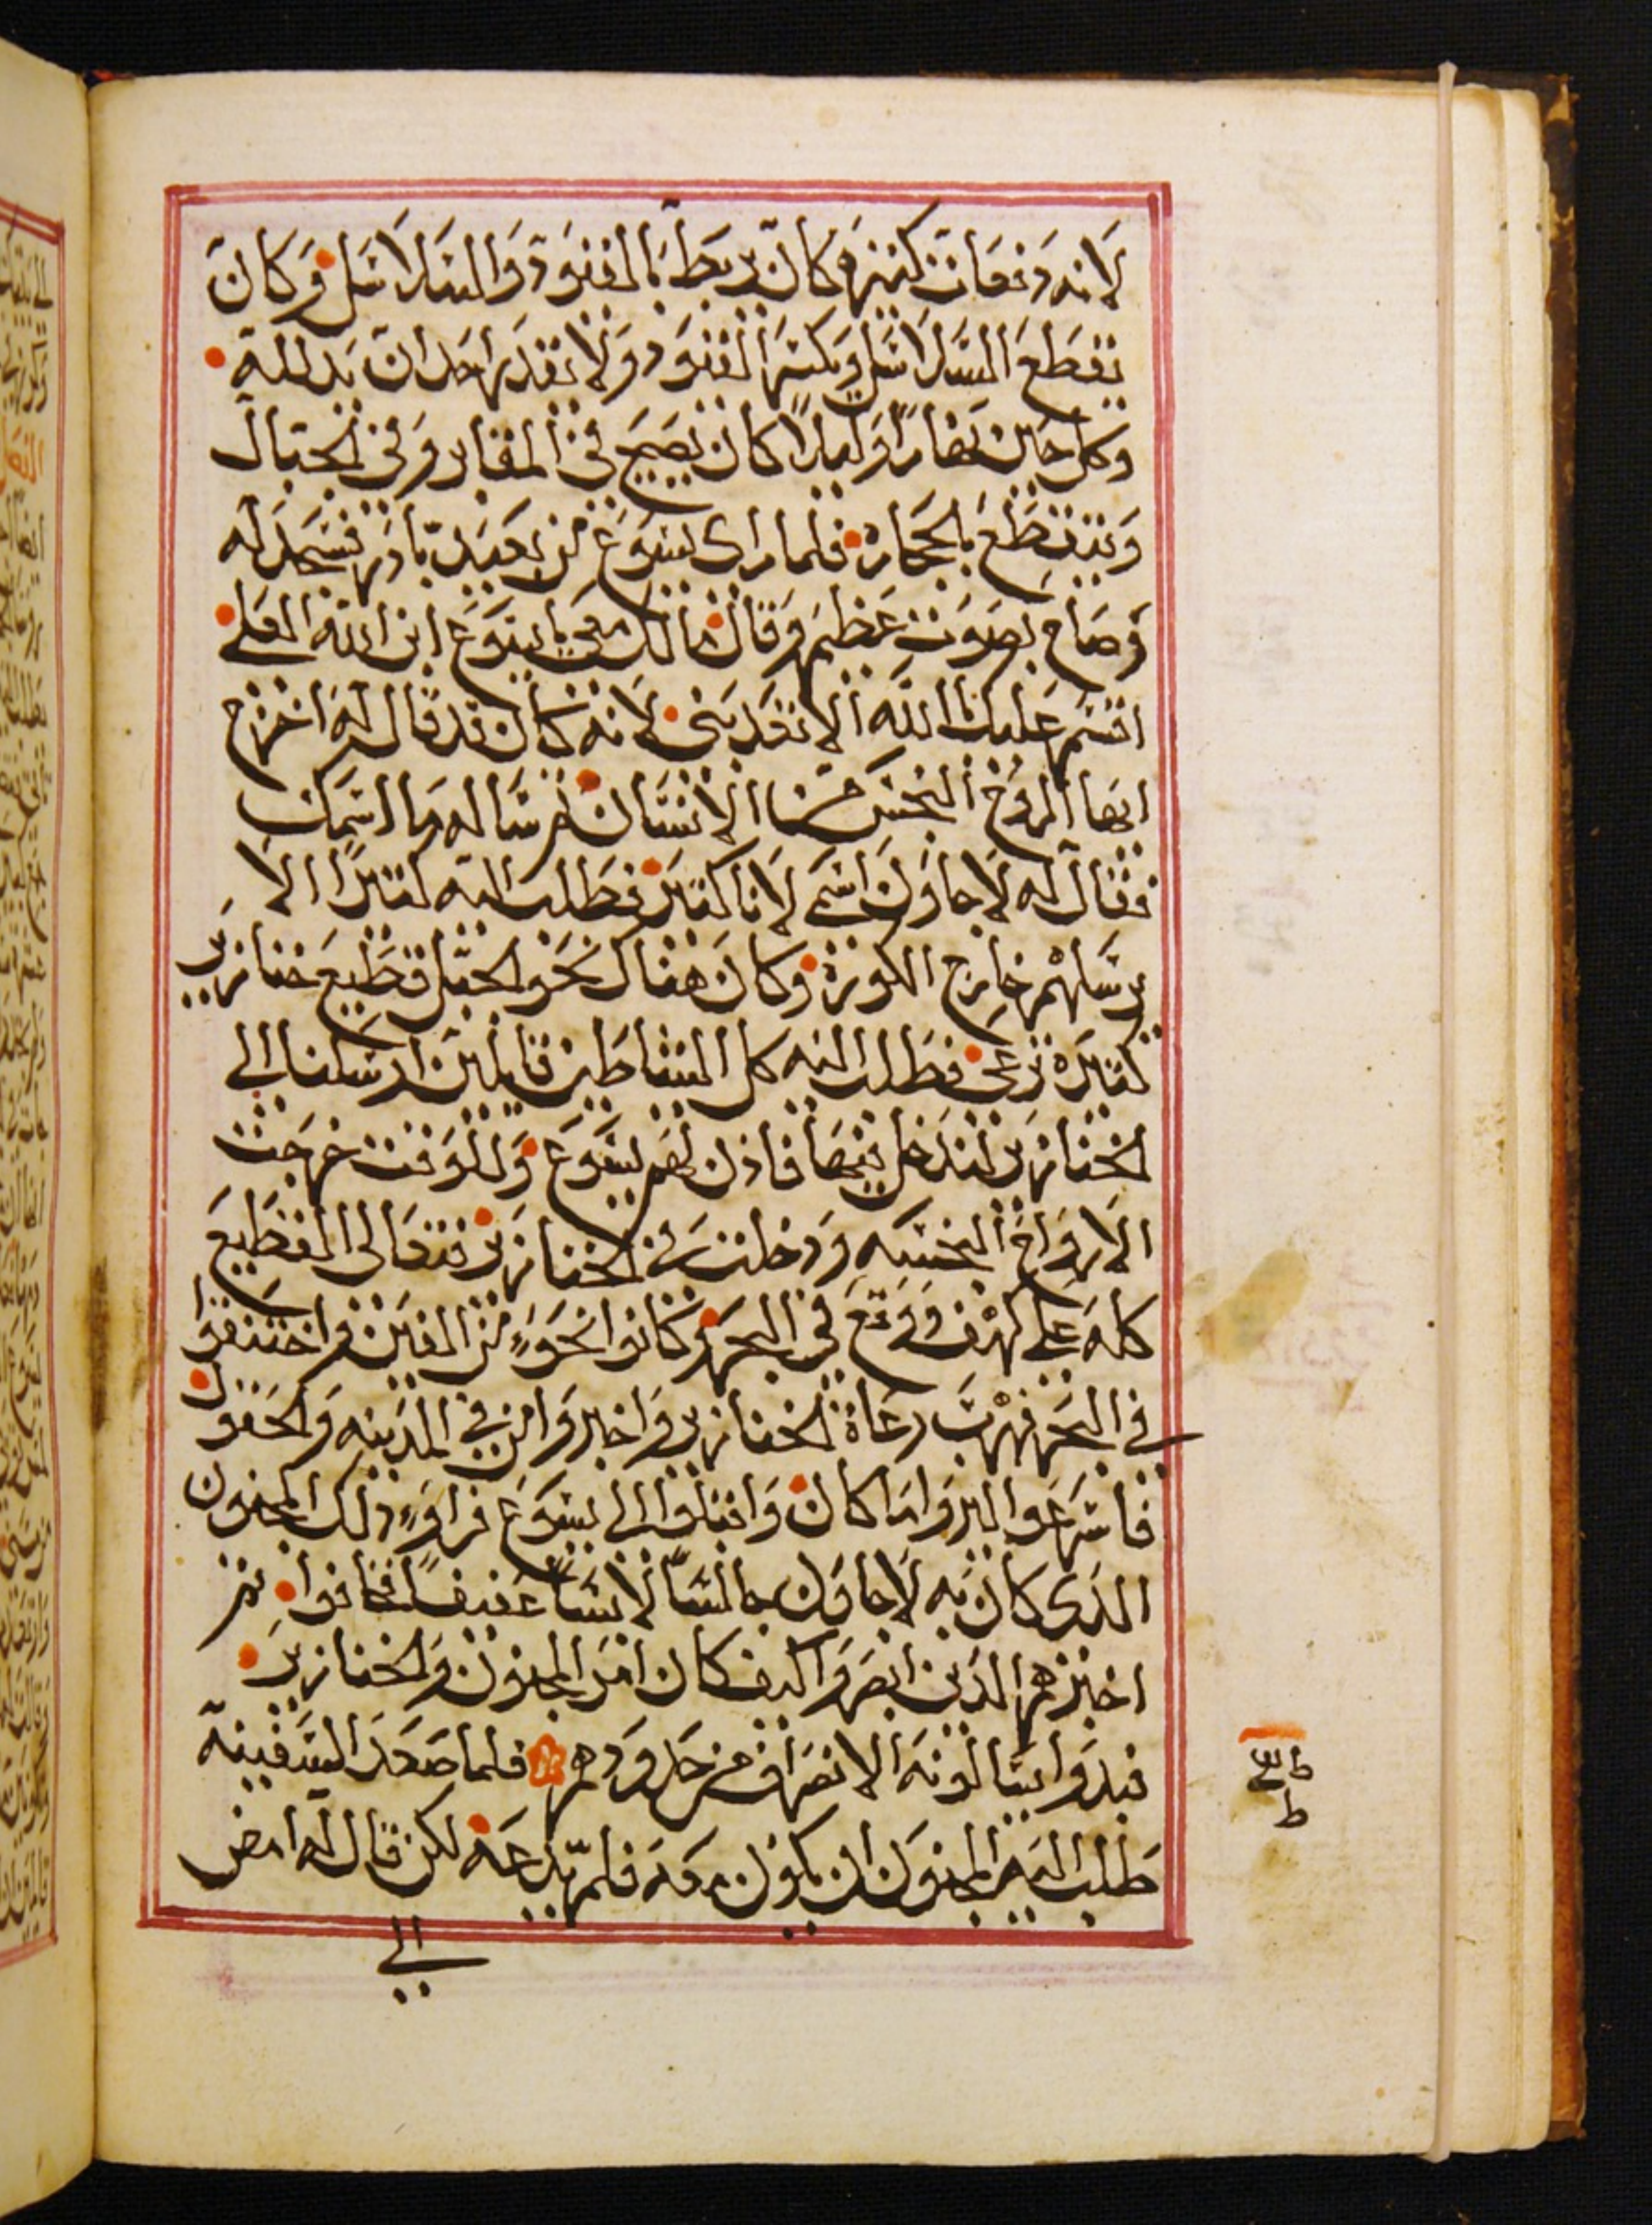 لانه دفعات كثيره كان يربط بالقيود والسلاسل وكان
يقطع السلاسل ويكسر القيود ولا يقدر احد ان يدلله
وكل حين نهارا وليلا كان يصيح في المقابر وفي الجبال
ويتقطع بالحجاره فلما راى يسوع من بعيد بادر فسجد له
وصاح بصوت عظيم وقال مالك معي يا يسوع ابن الله العلي
اقسم عليك بالله الا تعدبني لانه كان قد قال له اخرج
ايها الروح النجس من الانسان ثم ساله ما اسمك
فقال له لاجاون اسمي لانا كثير فطلب اليه كثيرا الا
يرسلهم خارج الكوره وكان هناك نحو الجبل قطيع خنازير
كثيره ترعى فطلب اليه كل الشياطين قايلين ارسلنا الى
الخنازير لندخل فيها فاذن لهم يسوع وللوقت خرجت
الارواح النجسه ودخلت في الخنازير فتعالى القطيع
كله على كهف ووقع في البحر وكانوا نحو من الفين واختنقوا
في البحر فهرب رعاة الخنازير واخبروا من في المدينه والحقول
فاسرعوا ليروا ما كان واقبلوا الى يسوع فراو ذلك المجنون
الذي كان به لاجاون جالسا لابسا عفيفا فخافوا ثم
اخبرهم الذين ابصروا كيف كان امر المجنون والخنازير
فبدوا يسالونه الانصراف من حدودهم فلما صعد السفينه
طلب اليه المجنون ان يكون معه فلم يدعه لكن قال له امض
الى